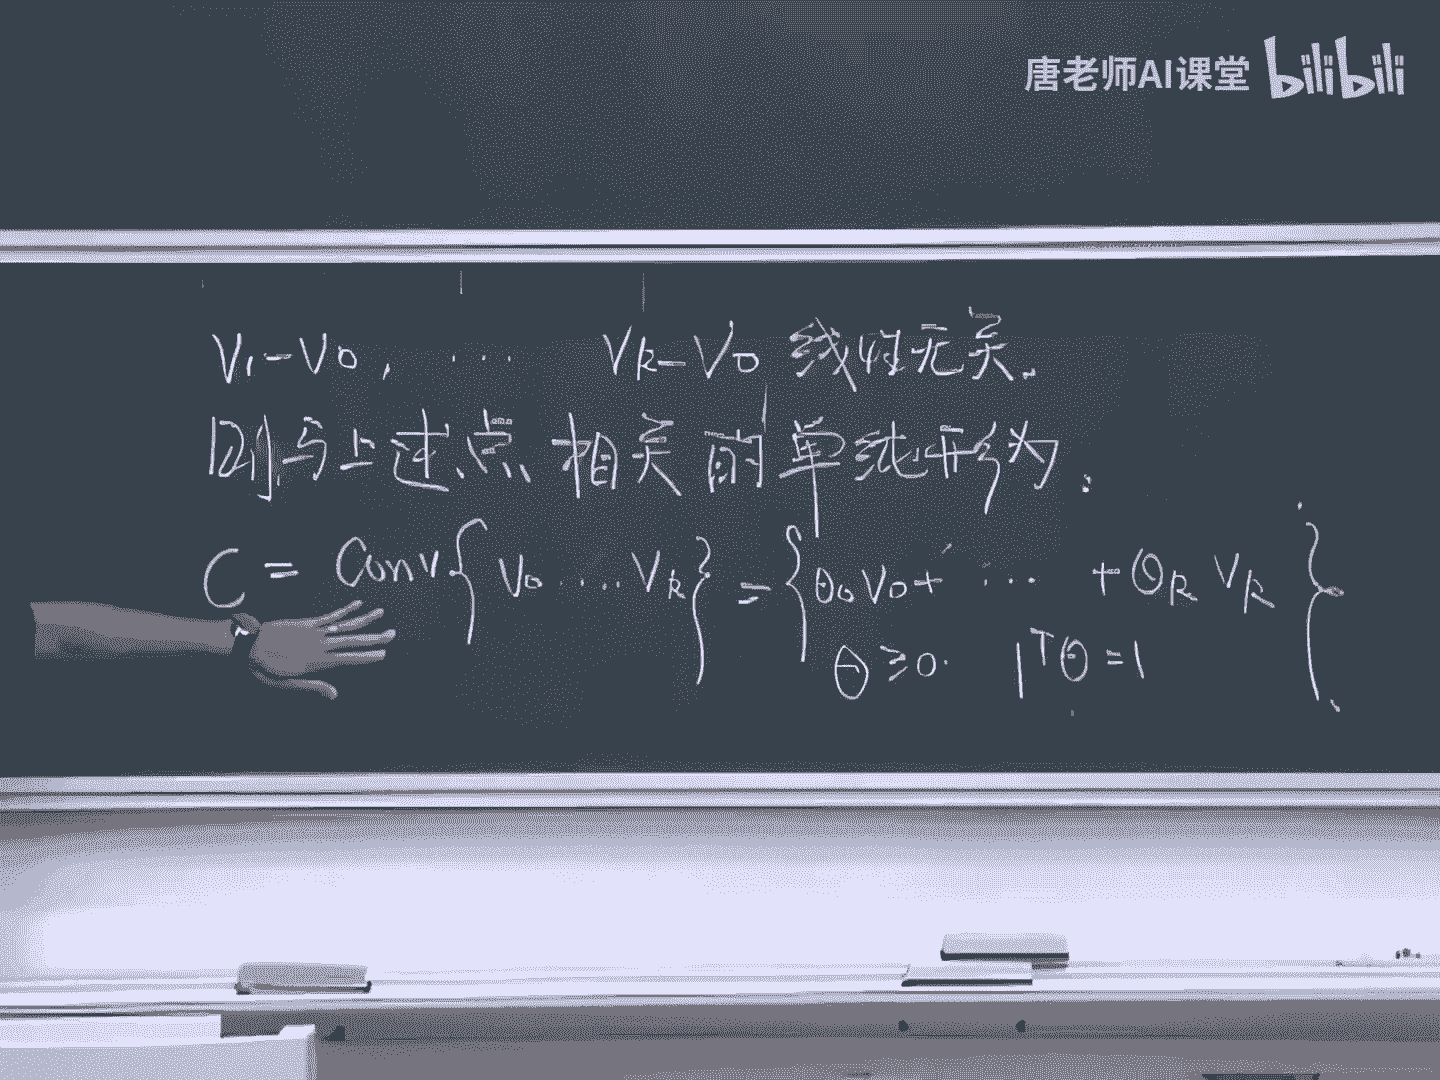 唐老师AI课堂 bilibili
V₁-V₀, ... Vₖ-V₀ 线性无关.
则与上述点相关的单纯形为:
C = Conv{V₀ .... Vₖ} = {θ₀V₀+ ... +θₖVₖ
θ≥0. 1ᵀθ=1}